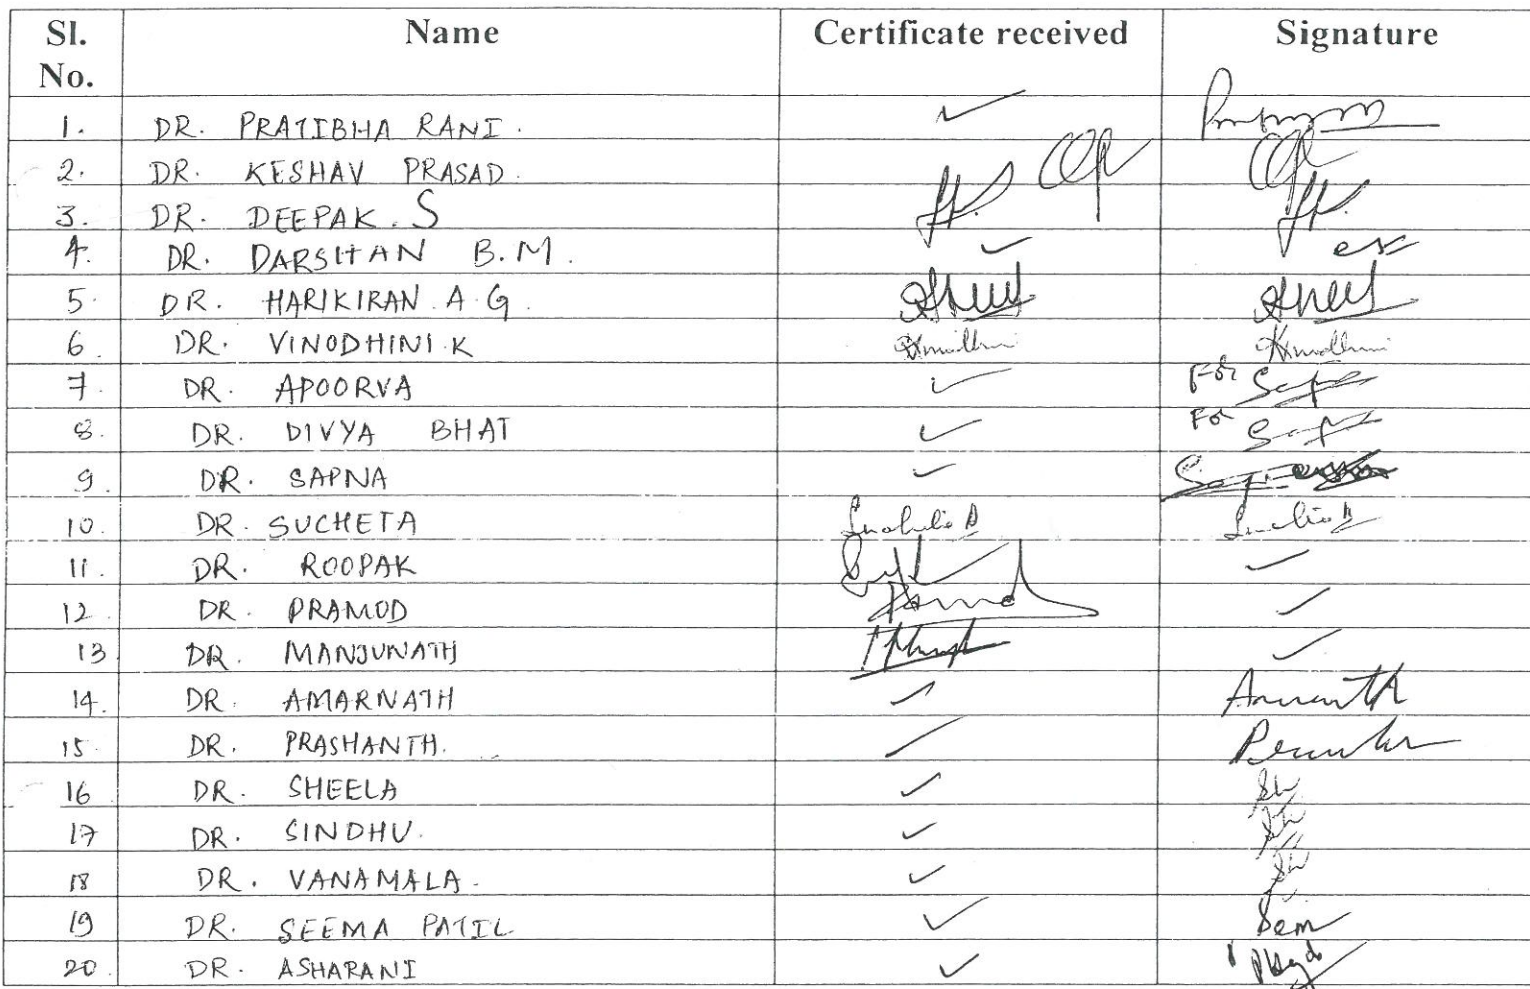 Sl. No. Name Certificate received Signature
1. DR. PRATIBHA RANI. ✓
2. DR. KESHAV PRASAD.
3. DR. DEEPAK. S
4. DR. DARSHAN B.M. ✓
5. DR. HARIKIRAN A.G.
6. DR. VINODHINI.K
7. DR. APOORVA ✓ For
8. DR. DIVYA BHAT ✓ For
9. DR. SAPNA ✓
10. DR. SUCHETA
11. DR. ROOPAK ✓
12. DR. PRAMOD ✓
13 DR. MANJUNATH ✓
14. DR. AMARNATH ✓
15. DR. PRASHANTH. ✓
16 DR. SHEELA ✓
17 DR. SINDHU. ✓
18 DR. VANAMALA. ✓
19 DR. SEEMA PATIL ✓
20 DR. ASHARANI ✓